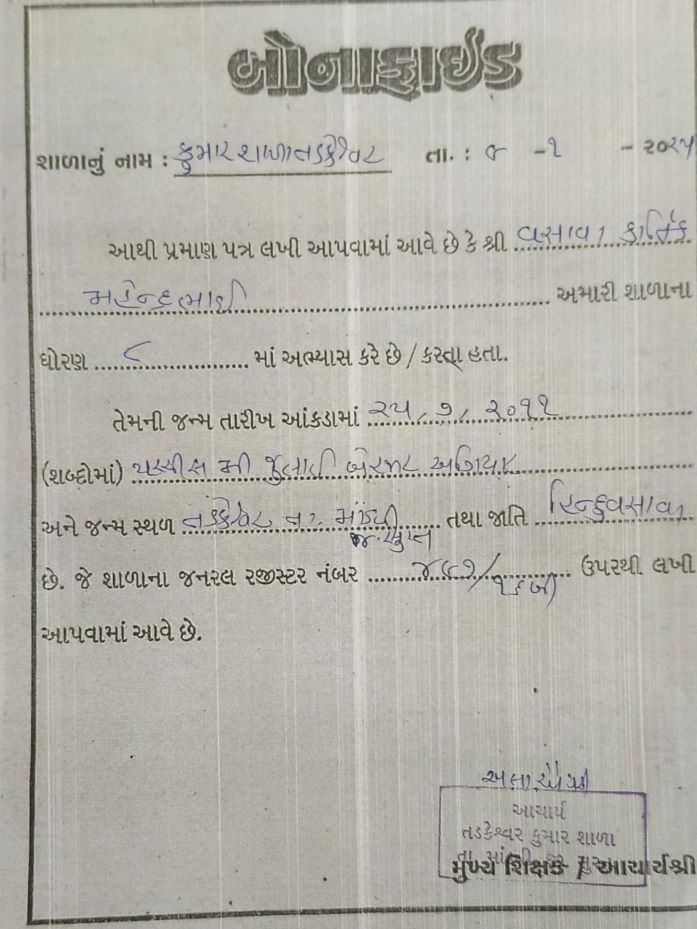 બોનાફાઈડ
શાળાનું નામ : કુમાર શાળા તડકેશ્વર તા. : ૭ -૧ - ૨૦૨૫
આથી પ્રમાણ પત્ર લખી આપવામાં આવે છે કે શ્રી વસાવા કાર્તિક
મહેન્દ્રભાઈ અમારી શાળાના
ધોરણ ૮ માં અભ્યાસ કરે છે / કરતા હતા.
તેમની જન્મ તારીખ આંકડામાં ૨૫/૭/૨૦૧૧
(શબ્દોમાં) પચ્ચીસ મી જુલાઈ બેહજાર અગિયાર
અને જન્મ સ્થળ તડકેશ્વર તા. માંડવી તથા જાતિ હિન્દુવસાવા
જી. સુરત
છે. જે શાળાના જનરલ રજીસ્ટર નંબર ઉપરથી લખી
આપવામાં આવે છે.
આચાર્ય
તડકેશ્વર કુમાર શાળા
મુખ્ય શિક્ષક / આચાર્યશ્રી